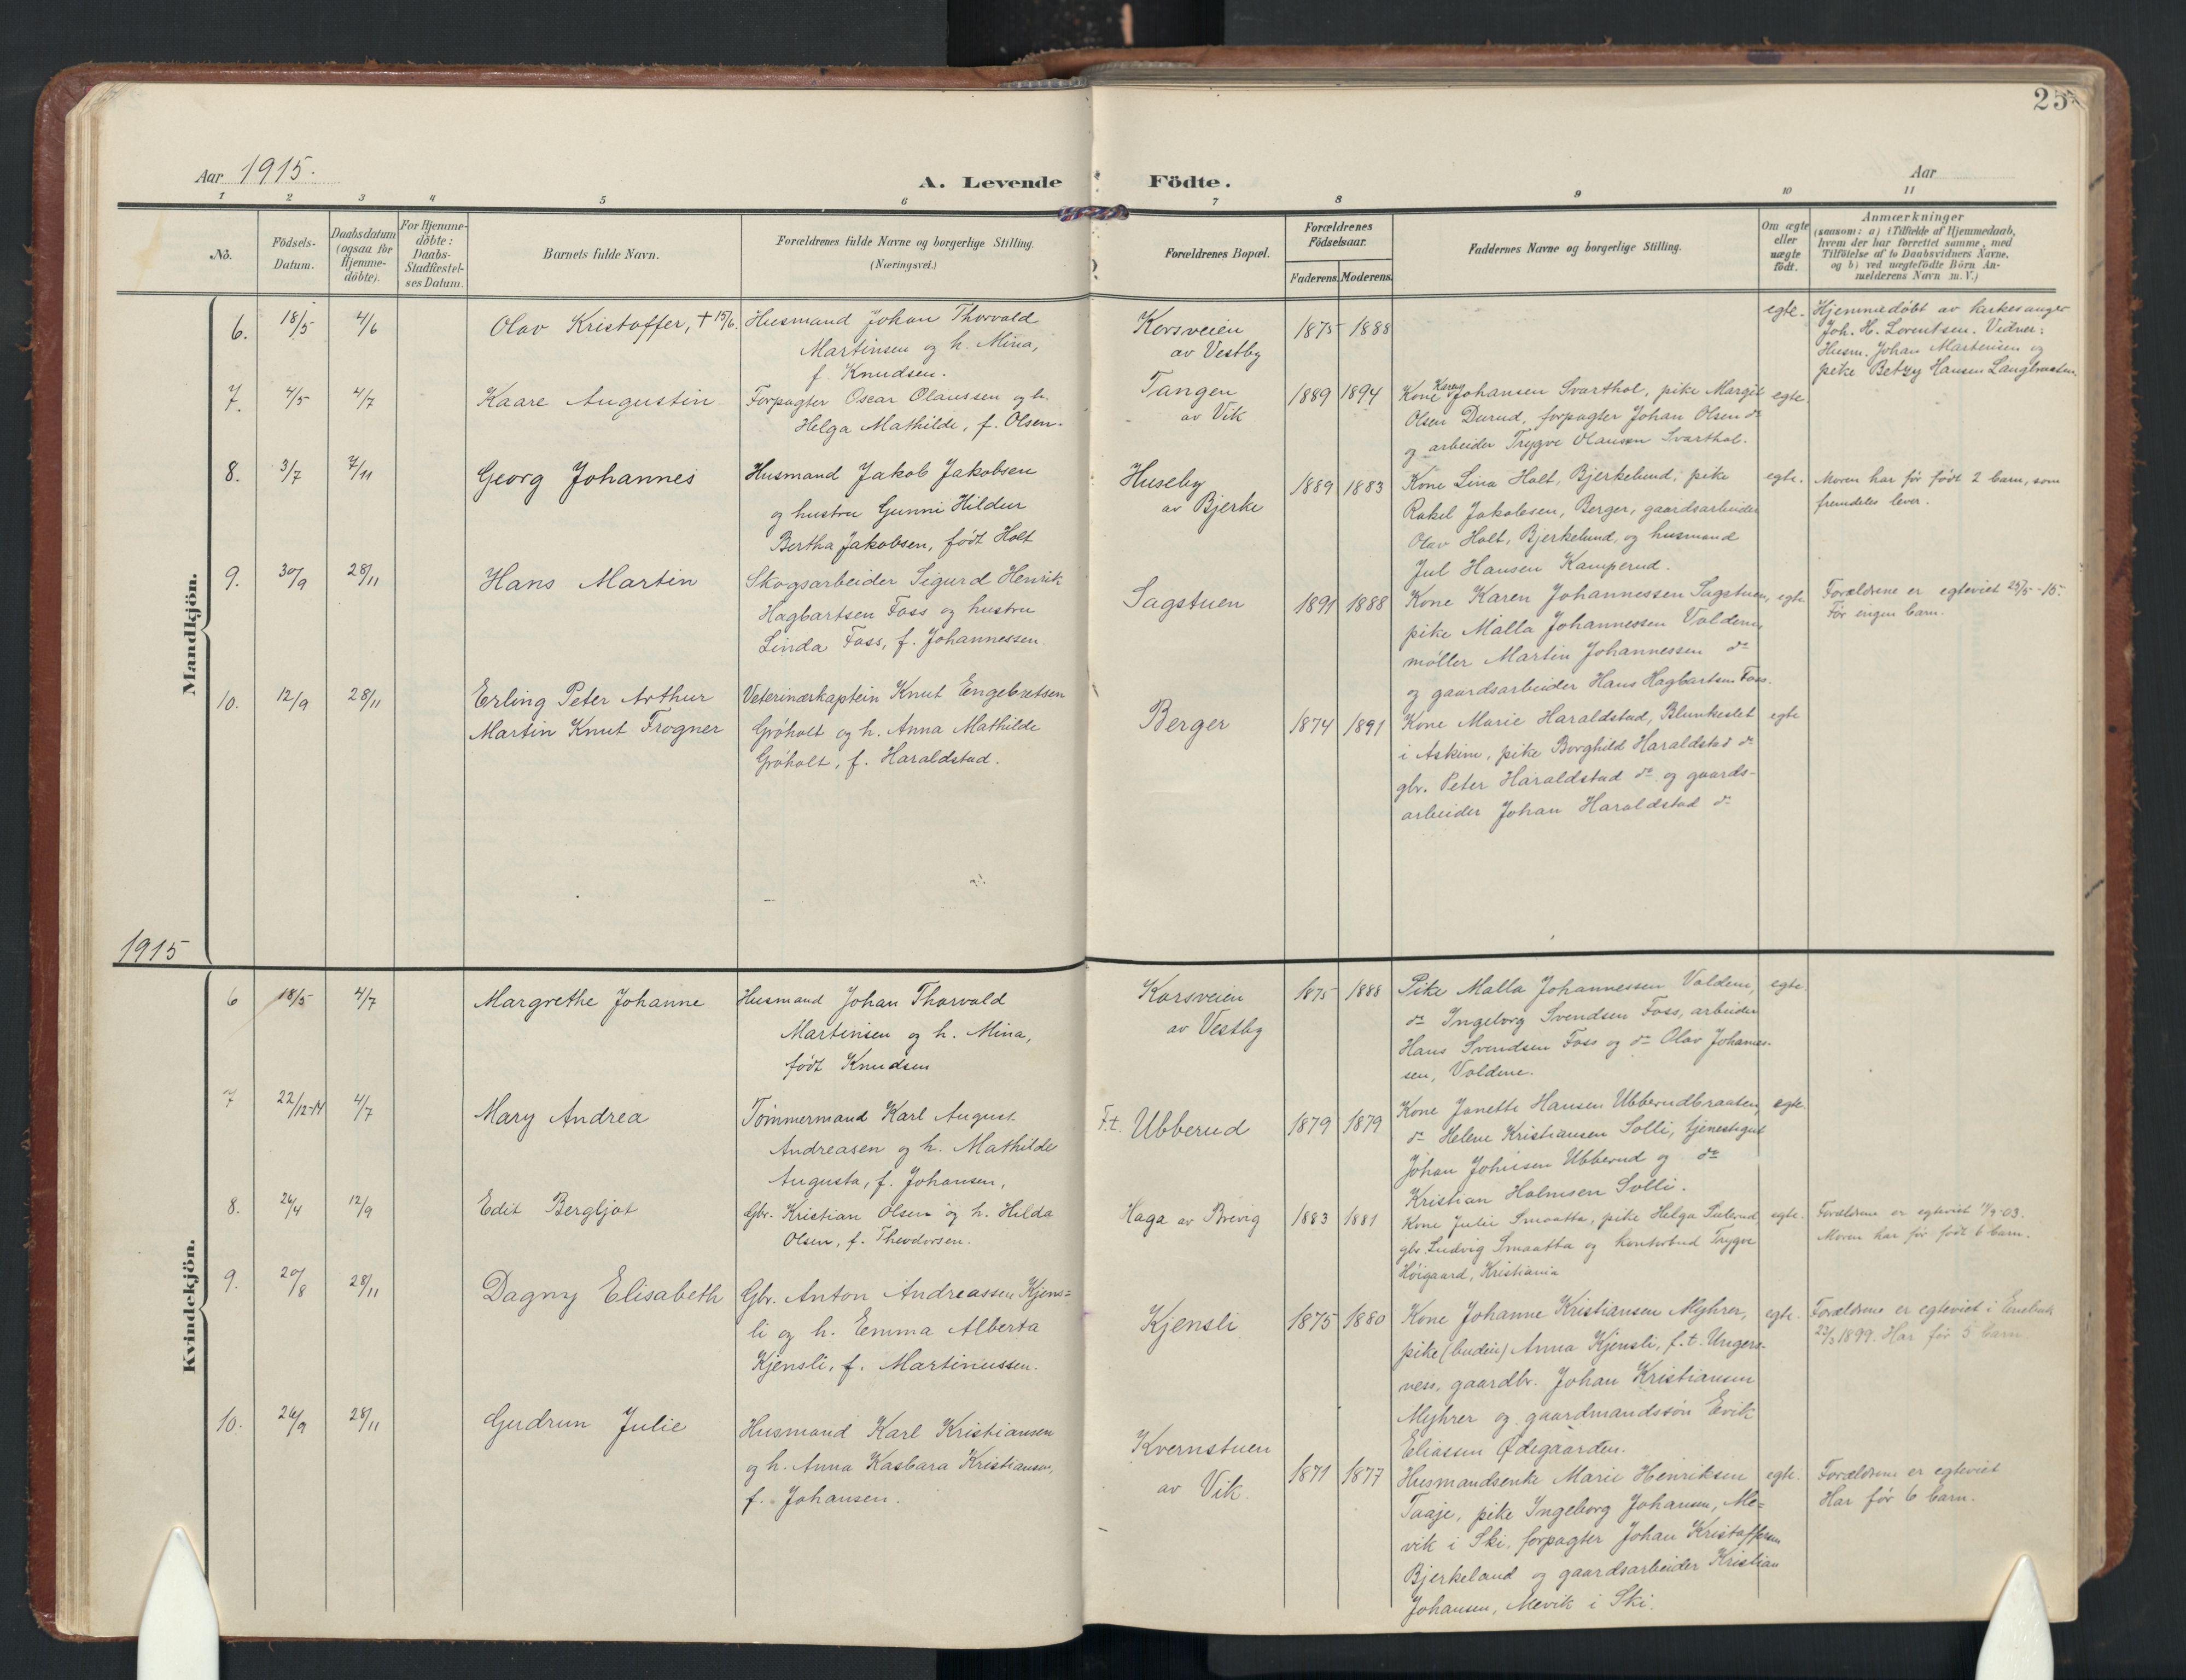 25
Aar 1915.
A. Levende Födte.
Aar
1 2 3 4 5 6 7 8 9 10 11
No.
Födsels-
Datum.
Daabsdatum
(ogsaa for
Hjemme-
döbte).
For Hjemme-
döbte:
Daabs-
Stadfæstel-
ses Datum.
Barnets fulde Navn.
Forældrenes fulde Navne og borgerlige Stilling.
(Næringsvei.)
Forældrenes Bopæl.
Forældrenes
Födselsaar.
Faderens. Moderens.
Faddernes Navne og borgerlige Stilling.
Om ægte
eller
uægte
födt.
Anmærkninger
(saasom: a) i Tilfælde af Hjemmedaab,
hvem der har forrettet samme, med
Tilföielse af to Daabsvidners Navne,
og b) ved uægtefödte Börn An-
melderens Navn m. V.)
Mandkjön.
6. 18/5 4/6 Olav Kristoffer, + 15/6.
Husmand Johan Thorvald
Martinsen og h. Mina,
f. Knudsen.
Korsveien
av Vestby
1875 1888
egte.
Hjemmedøbt av kirkesanger
Joh. H. Lorentsen. Vidner:
Husm. Johan Martinsen og
pike Betzy Hansen Langbraaten
7. 4/5 4/7 Kaare Augustin
Forpagter Oscar Olaussen og h.
Helga Mathilde, f. Olsen.
Tangen
av Vik
1889 1894
Kone Karen Johansen Svarthol, pike Margit
Olsen Durud, forpagter Johan Olsen do
og arbeider Trygve Olausen Svarthol.
egte.
8. 3/7 7/11 Georg Johannes
Husmand Jakob Jakobsen
og hustru Gunni Hildur
Bertha Jakobsen, født Holt
Huseby
av Bjerke
1889 1883
Kone Lina Holt, Bjerkelund, pike
Rakel Jakobsen, Berger, gaardsarbeider
Olav Holt, Bjerkelund, og husmand
Jul Hansen Kamperud.
egte.
Moren har før født 2 barn, som
fremdeles lever.
9. 30/9 28/11 Hans Martin
Skogsarbeider Sigurd Henrik
Hagbartsen Foss og hustru
Linda Foss, f. Johannessen.
Sagstuen
1891 1888
Kone Karen Johannessen Sagstuen,
pike Malla Johannessen Voldene,
møller Martin Johannessen do
og gaardsarbeider Hans Hagbartsen Foss.
egte
Forældrene er egteviet 25/5-15.
Før ingen barn.
10. 12/9 28/11 Erling Peter Arthur
Martin Knut Frogner
Veterinærkaptein Knut Engebretsen
Grøholt og h. Anna Mathilde
Grøholt, f. Haraldstad.
Berger
1874 1891
Kone Marie Haraldstad, Blunkeslet
i Askim, pike Borghild Haraldstad do
gbr. Peter Haraldstad do og gaards-
arbeider Johan Haraldstad do
egte
1915
Kvindekjön.
6 18/5 4/7 Margrethe Johanne
Husmand Johan Thorvald
Martinsen og h. Mina,
født Knudsen
Korsveien
av Vestby
1875 1888
Pike Malla Johannessen Voldene,
do Ingeborg Svendsen Foss, arbeider
Hans Svendsen Foss og do Olav Johannes-
sen, Voldene.
egte.
7 22/12-14 4/7 Mary Andrea
Tømmermand Karl August
Andreasen og h. Mathilde
Augusta, f. Johansen,
F.t. Ubberud
1879 1879
Kone Janette Hansen Ubberudbraaten,
do Helene Kristiansen Solli, tjenestegut
Johan Johnsen Ubberud og do
Kristian Holmsen Solli.
egte.
8. 26/4 12/9 Edit Bergljot
Gbr. Kristian Olsen og h. Hilda
Olsen, f. Theodorsen.
Haga av Brevig
1883 1881
Kone Julie Smaatta, pike Helga
gbr. Ludvig Smaatta og kontorbud Trygve
Høigaard, Kristiania
egte.
Forældrene er egteviet /9-03.
Moren har før født 6 barn.
9. 20/8 28/11 Dagny Elisabeth
Gbr. Anton Andreassen Kjens=
li og h. Emma Alberta
Kjensli, f. Martinussen.
Kjensli
1875 1880
Kone Johanne Kristiansen Myhrer,
pike (budeie) Anna Kjensli, f.t. Ungers-
ness, gaardbr. Johan Kristiansen
Myhrer og gaardmandssøn Evik
Eliassen Ødegaarden.
egte.
Forældrene er egteviet i Enebak
23/3 1899. Har før 5 barn
10. 26/9 28/11 Gudrun Julie
Husmand Karl Kristiansen
og h. Anna Kasbara Kristiansen,
f. Johansen.
Kvernstuen
av Vik
1871 1877
Husmandsenke Marie Henriksen
Taaje, pike Ingeborg Johansen, Me=
vik i Ski, forpagter Johan Kristoffersen
Bjerkeland og gaardsarbeider Kristian
Johansen, Mevik i Ski.
egte.
Forældrene er egteviet
Har før 6 barn.